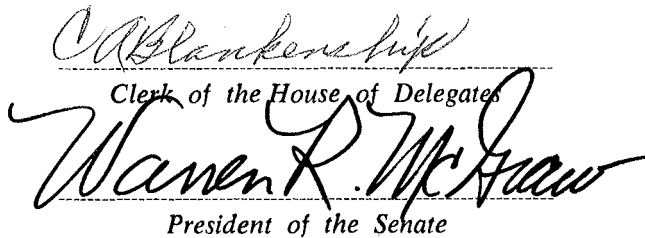 C A Blankenship
Clerk of the House of Delegates
Warren R. McGraw
President of the Senate